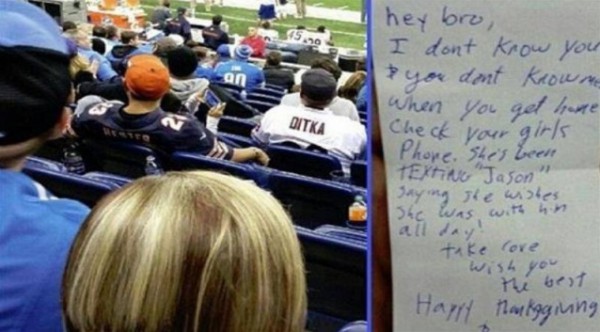 45
90
HESTER
23
DITKA
hey bro,
I dont know you
& you dont know me
when you get home
Check your girls
Phone. She's been
TEXTING "Jason"
saying she wishes
she was with him
all day!
take care
wish you
the best
Happy Thanksgiving